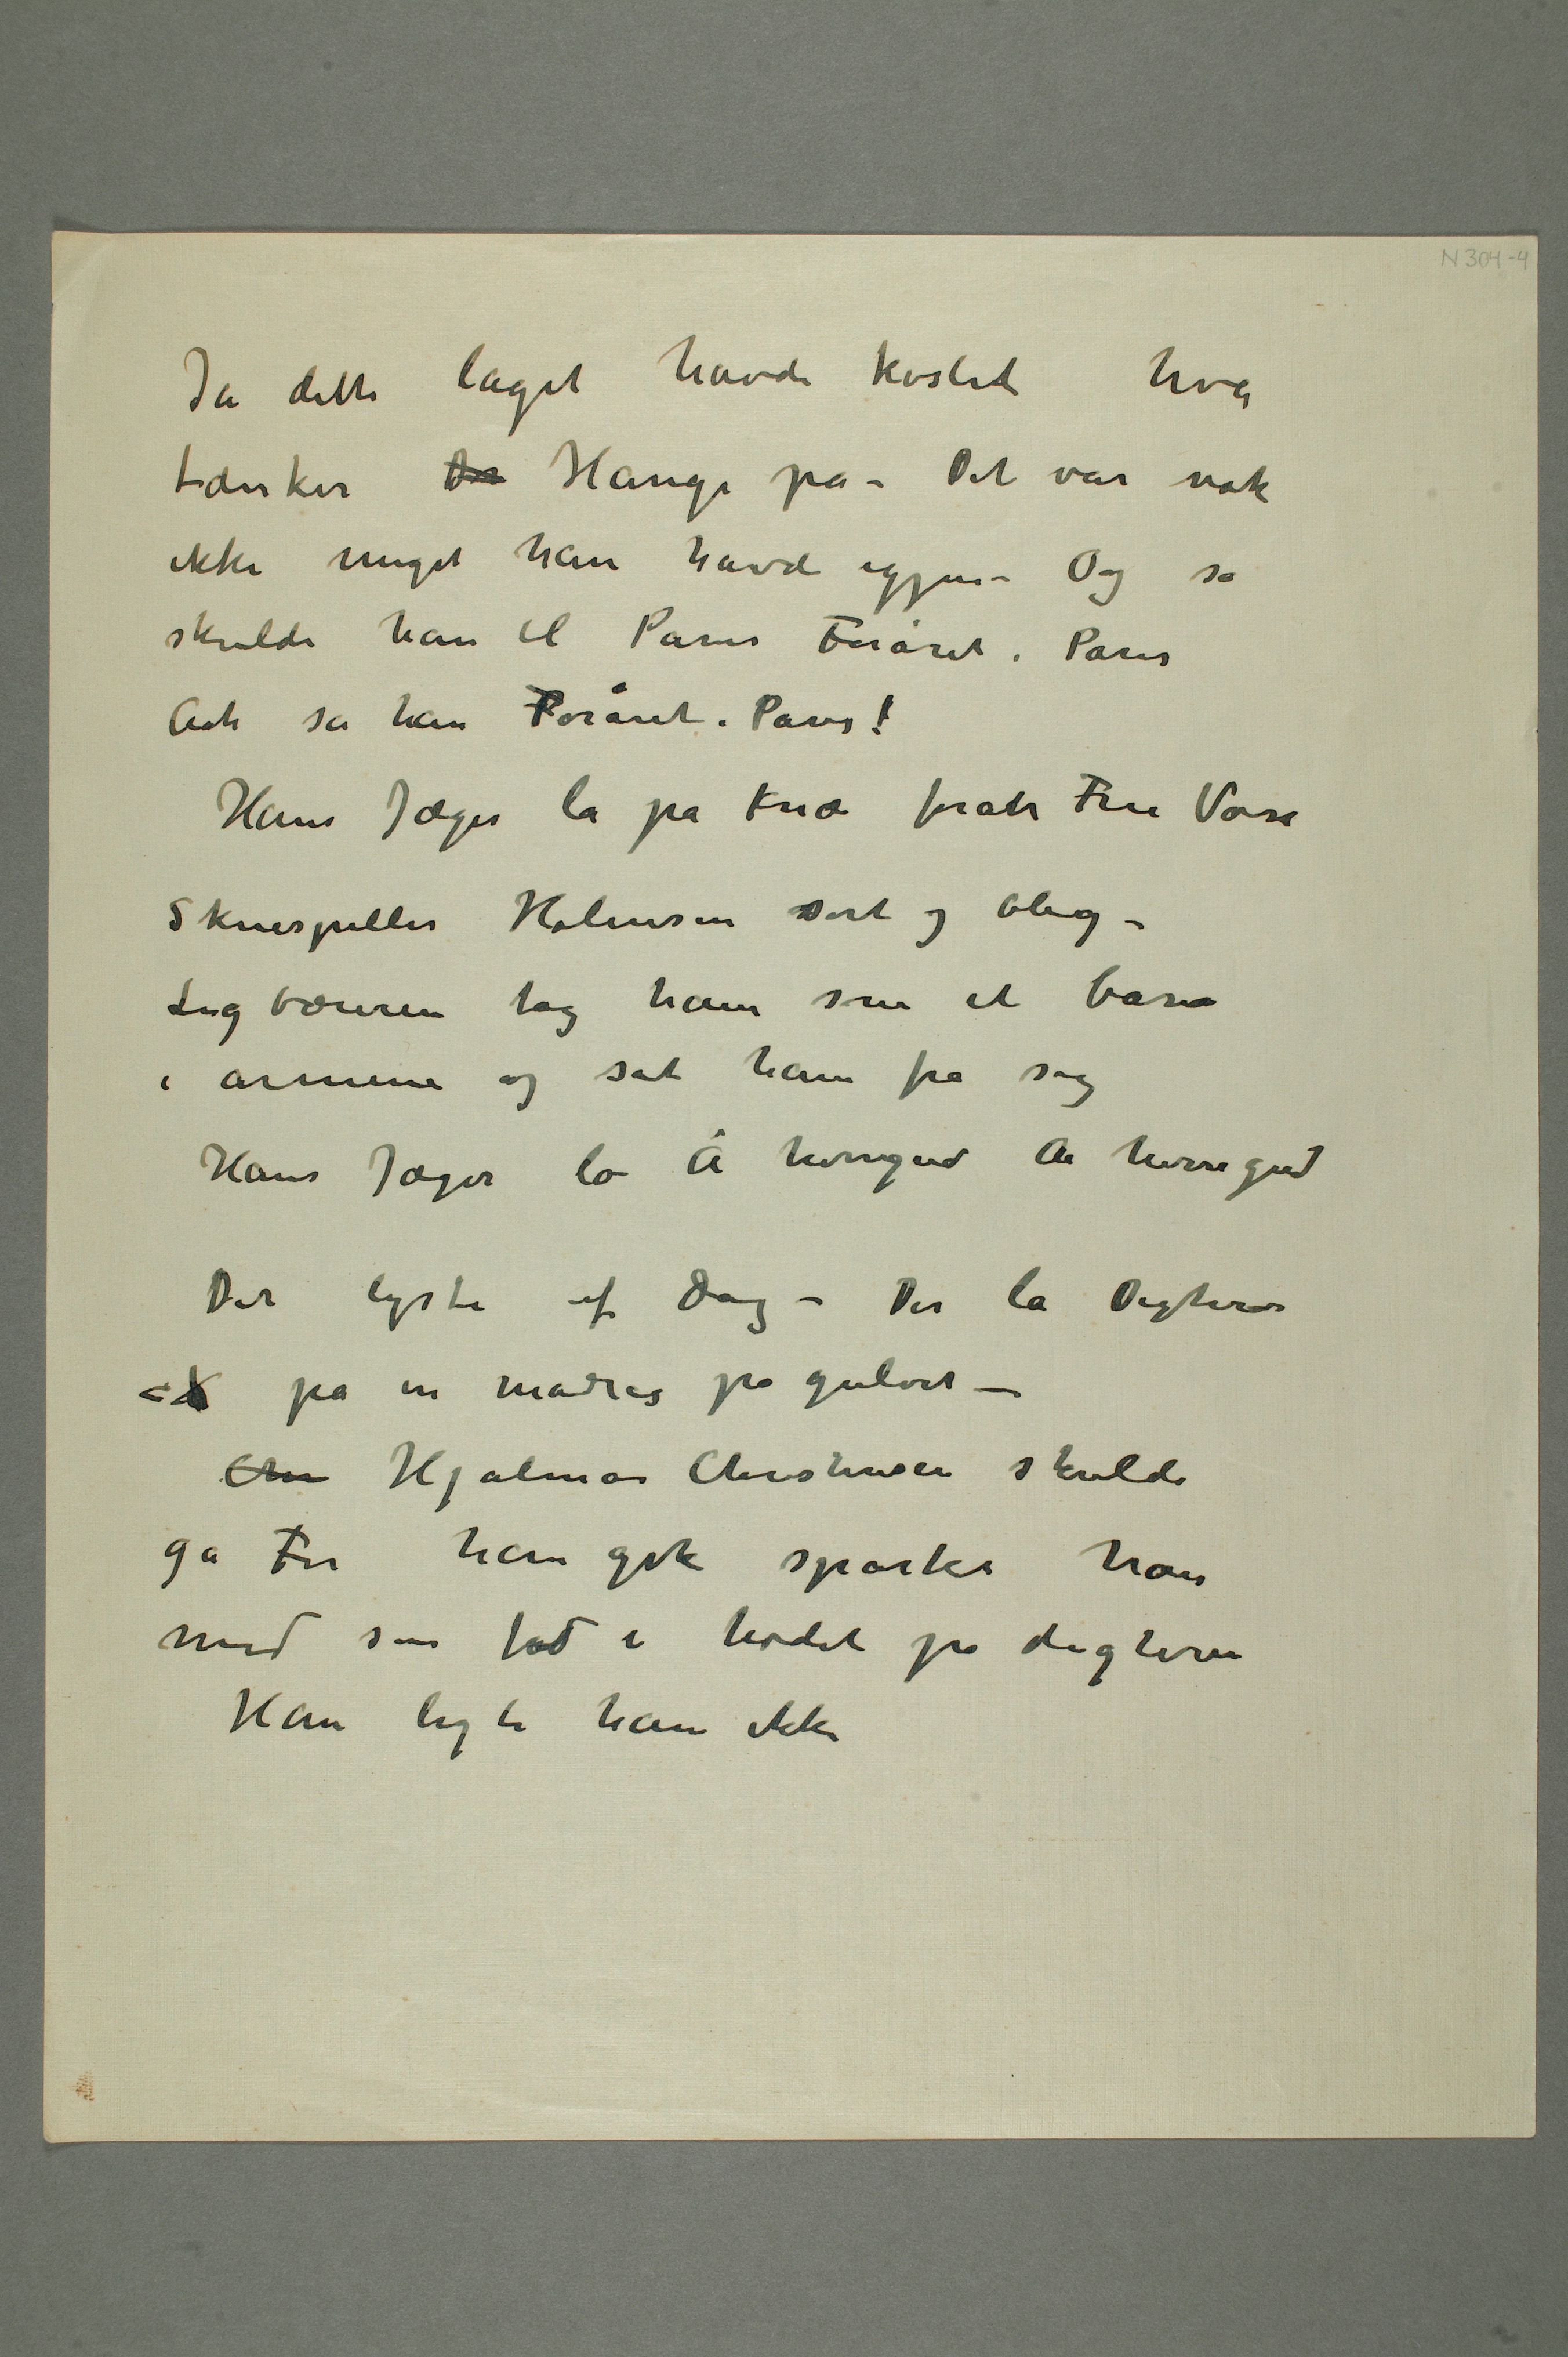 N 304-4
Ja dette laget havde kostet hva
tænker De Hauge på – Det var nok
ikke meget han havd igjen – Og så
skulde han til Paris Foråret i Paris
Ach sa han Foråret i Paris!
Hans Jæger la på Knæ foran Frue
Skuespiller Halvorsen sort og bleg –
Ligbæreren tog ham som et barn
i armene og sat ham fra sig
Hans Jæger lo Å herregud Å herregud
Det lyste af Dag – Der la Digteren
på en madras på gulvet –
Chr Hjalmar Christensen skulde
gå Før han gik sparket han
med sin fod i hodet på digteren
Han ligte ham ikke